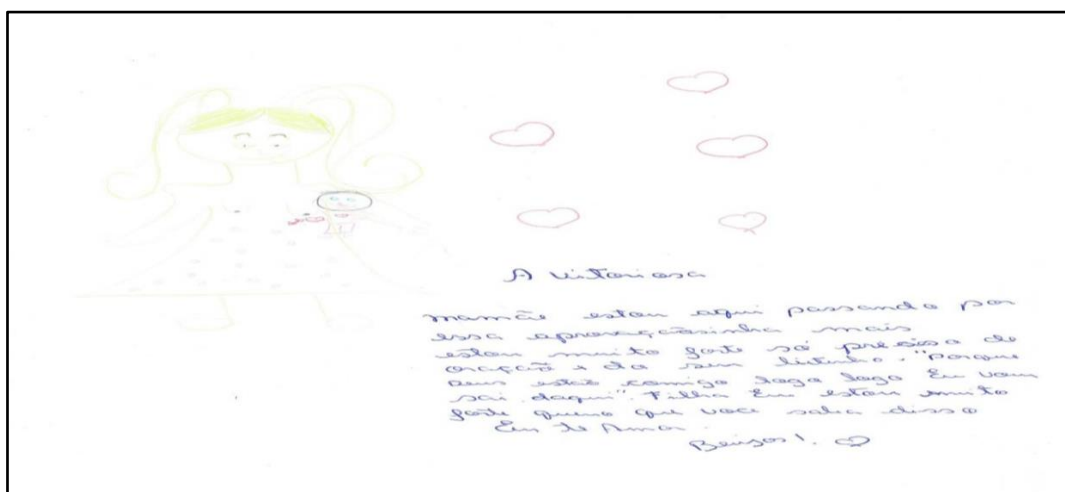 A vitoriosa
mamãe estou aqui passando por
essa aprovaçãosinha mais
estou muito forte só preciso de
oração e do seu leitinho. "Porque
Deus está comigo logo logo Eu vou
sai daqui". Filha Eu estou muito
forte quero que voce saiba disso
Eu te Amo.
Beijos!